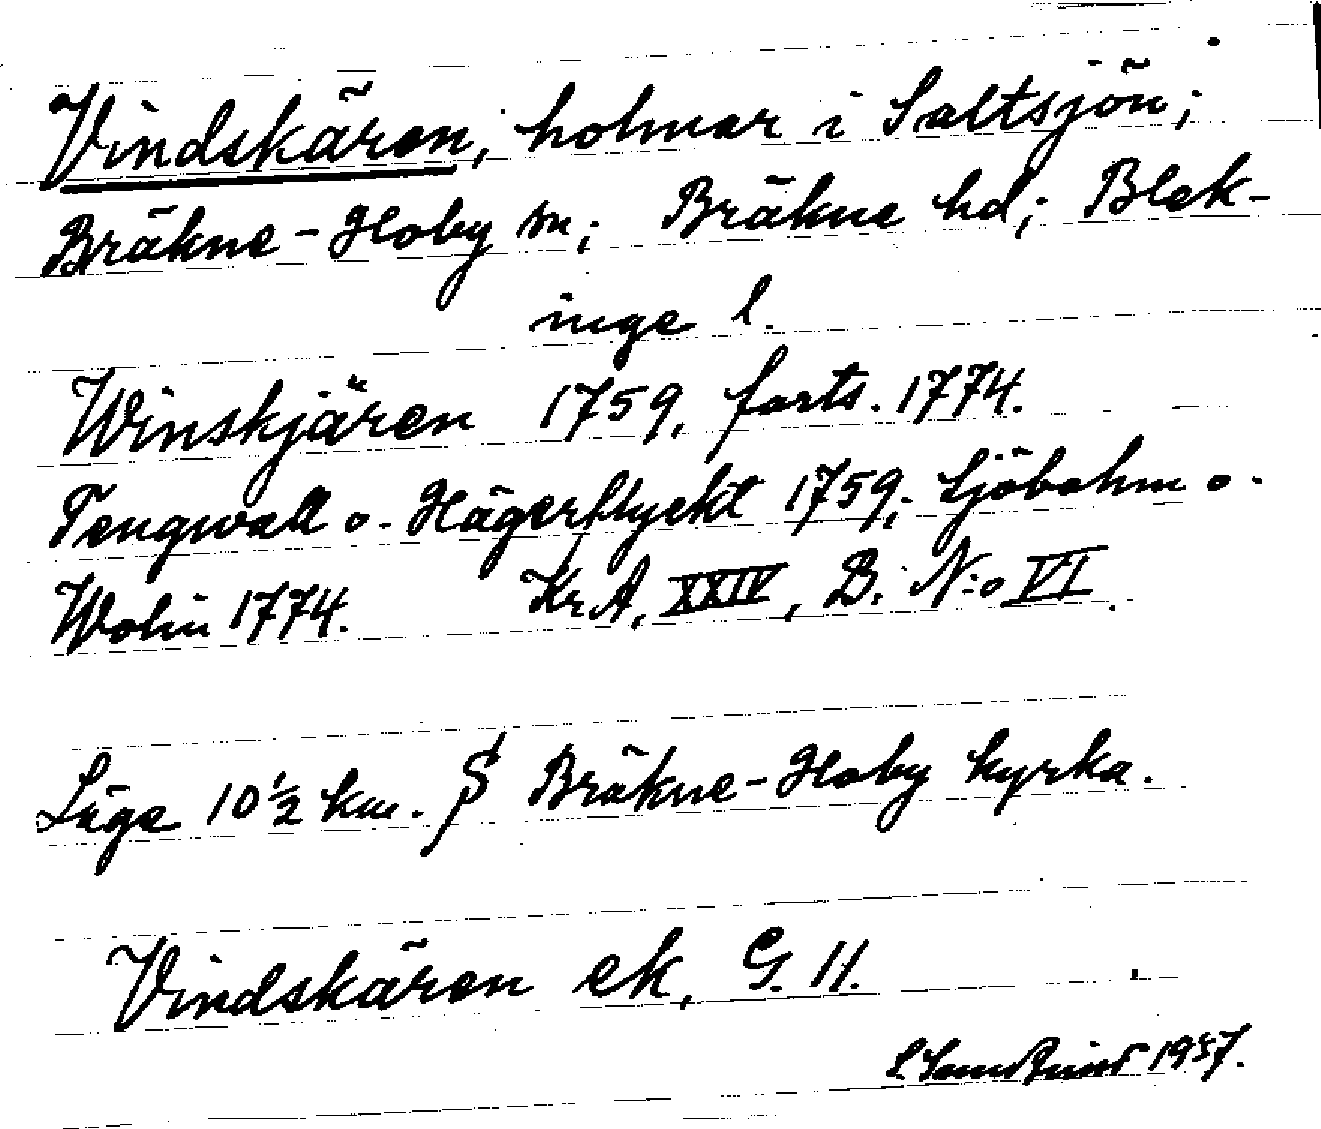 Vindskären, holmar i Saltsjön;
Bräkne-Hoby sn; Bräkne hd; Blek-
inge l.
Winskjären 1759, forts. 1774.
Tengwall o. Hägerflyckt 1759; Sjöbohm o.
Wolin 1774. KrA, XXIV, B. N:o VI.
Läge 10½ km. S Bräkne-Hoby kyrka.
Vindskären ek, G. 11.
1957.